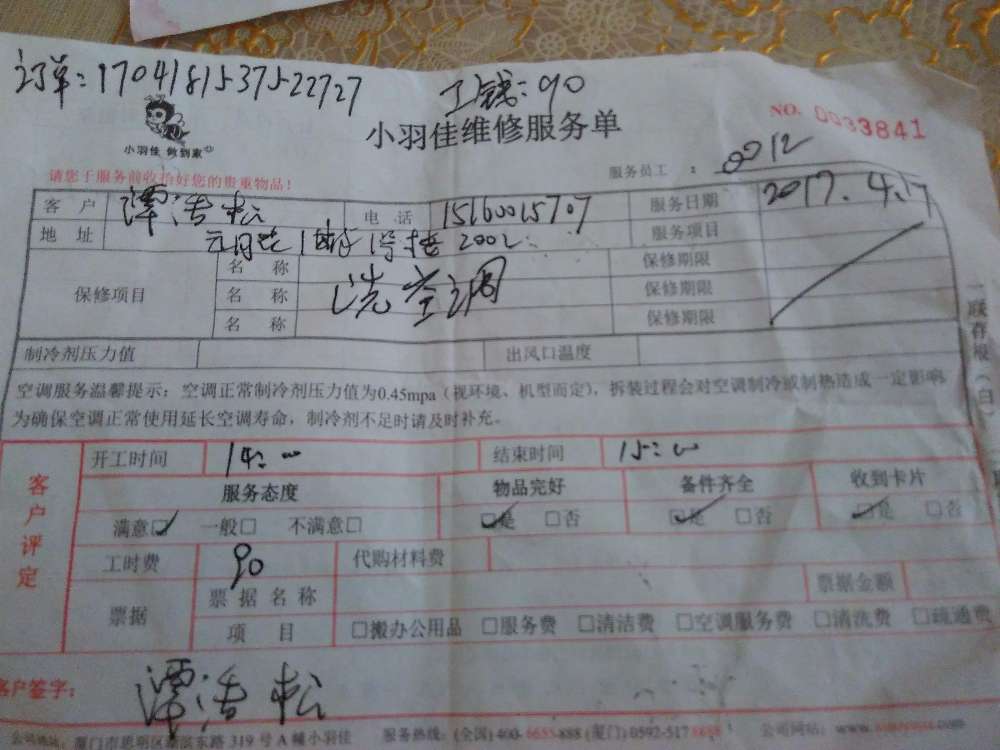 订单：1704181537522727 工钱：90
小羽佳 做到家
小羽佳维修服务单
NO. 0033841
请您于服务前收拾好您的贵重物品！
服务员工 ： 0012
客 户 谭浩松 电 话 15160015707 服务日期 2017.4.17
地 址 2002 服务项目
保修项目 名 称 洗空调 保修期限
名 称 保修期限
名 称 保修期限
制冷剂压力值 出风口温度
空调服务温馨提示：空调正常制冷剂压力值为0.45mpa（视环境、机型而定），拆装过程会对空调制冷或制热造成一定影响
为确保空调正常使用延长空调寿命，制冷剂不足时请及时补充。
一联存根（白）
客户评定
开工时间 14:00 结束时间 15:00
服务态度 物品完好 备件齐全 收到卡片
满意☑ 一般□ 不满意□ ☑是 □否 ☑是 □否 ☑是 □否
工时费 90 代购材料费
票据 票据名称 票据金额
项 目 □搬办公用品 □服务费 □清洁费 □空调服务费 □清洗费 □疏通费
客户签字： 谭浩松
公司地址：厦门市思明区 东路 319 号 A 幢小羽佳 服务热线：(全国) 400-6655-888 (厦门) 0592-517 公司网站：www.